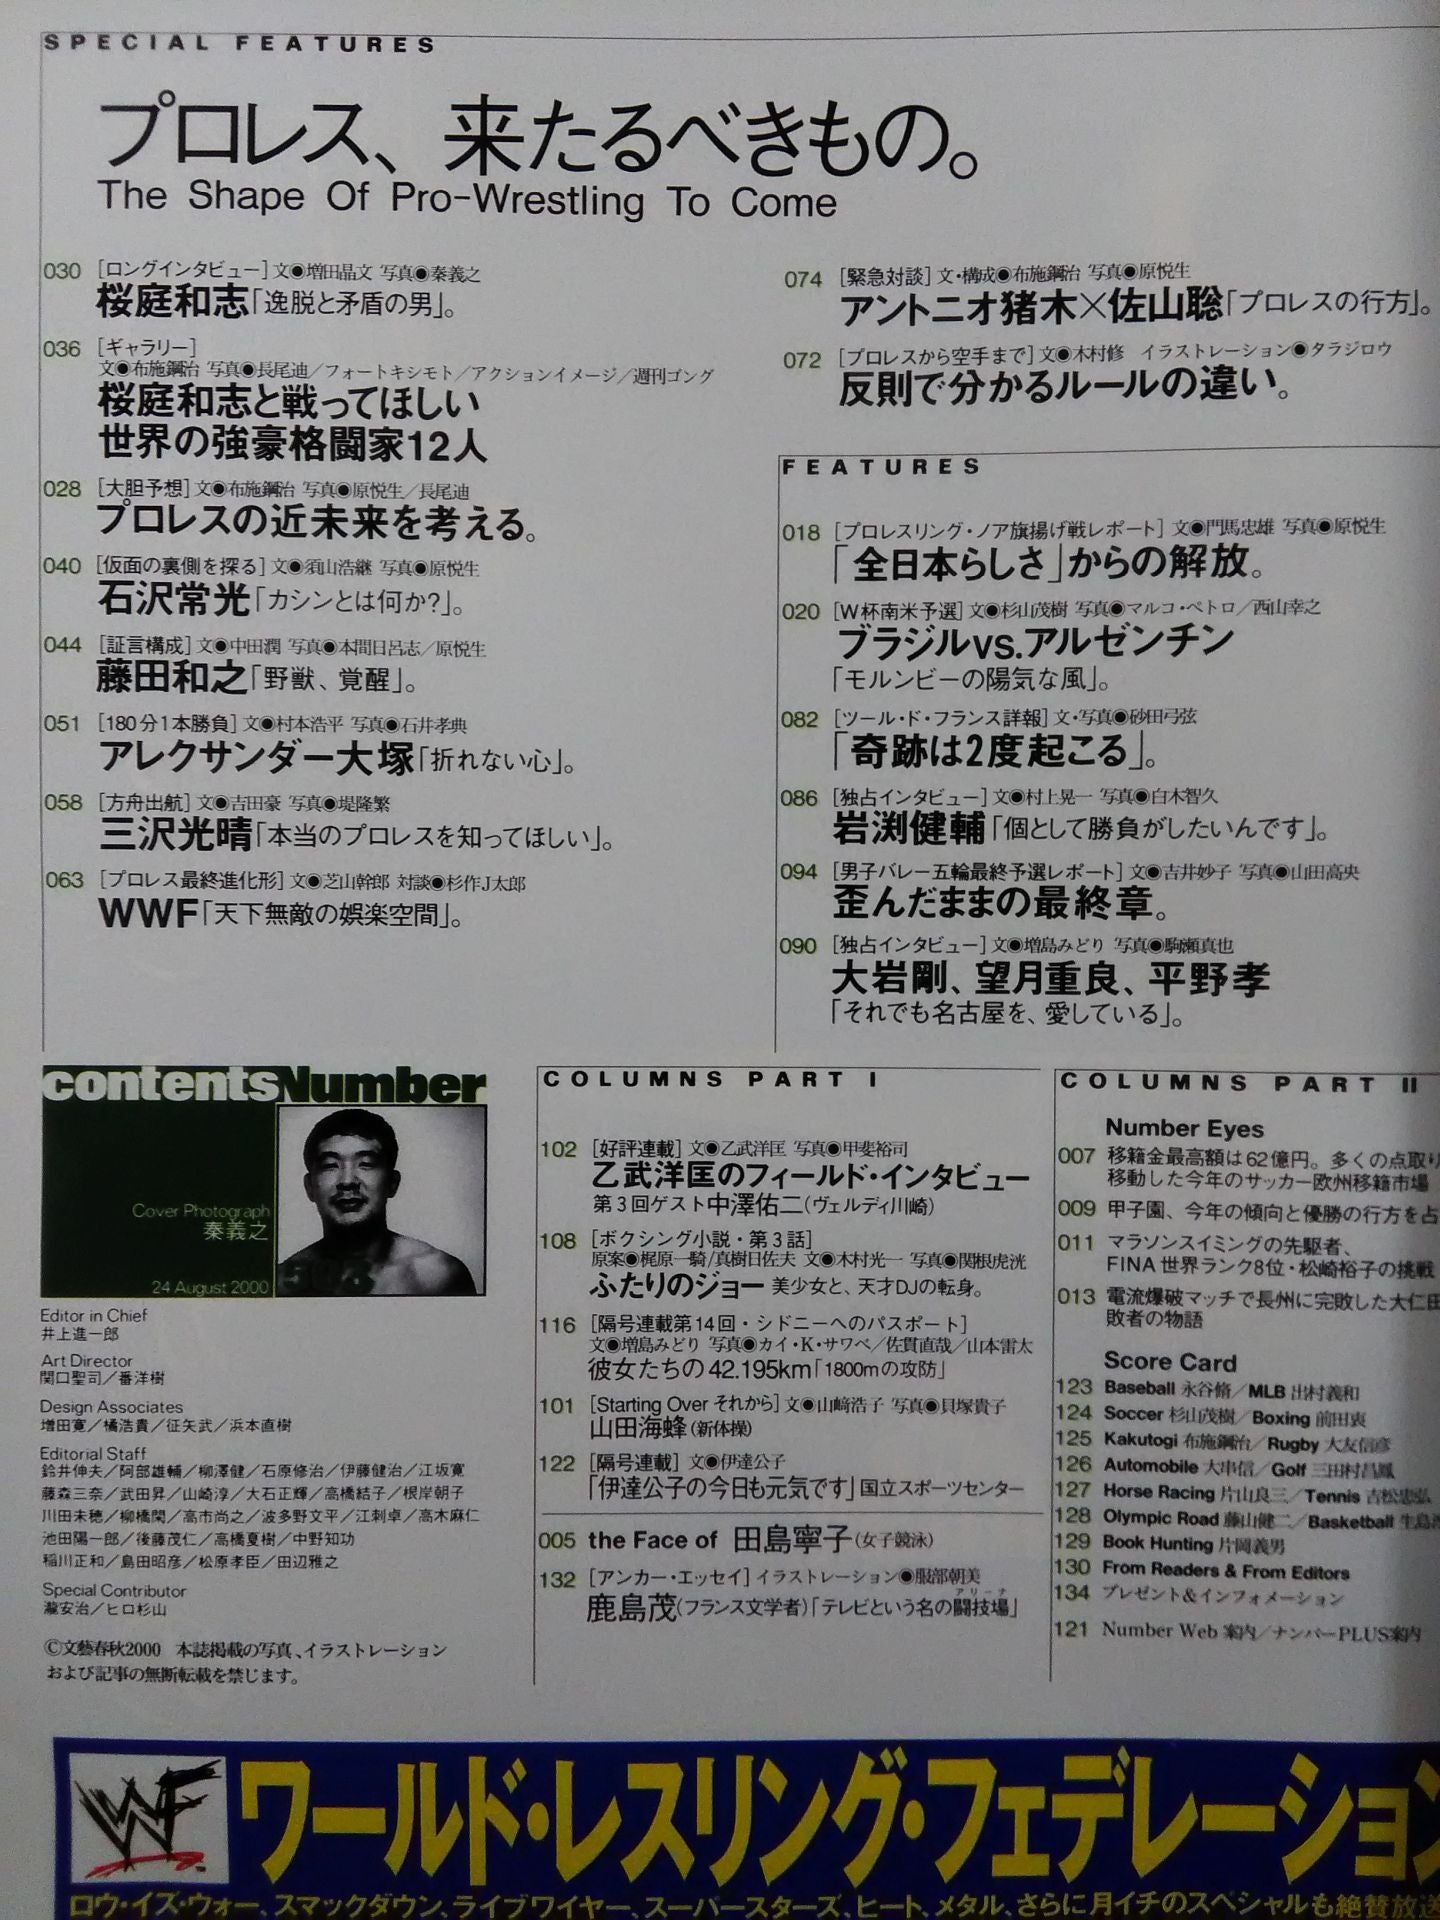 SPECIAL FEATURES
プロレス、来たるべきもの。
The Shape Of Pro-Wrestling To Come
030 [ロングインタビュー] 文●増田晶文 写真●秦義之
桜庭和志「逸脱と矛盾の男」。
036 [ギャラリー]
文●布施鋼治 写真●長尾迪／フォートキシモト／アクションイメージ／週刊ゴング
桜庭和志と戦ってほしい
世界の強豪格闘家12人
028 [大胆予想] 文●布施鋼治 写真●原悦生／長尾迪
プロレスの近未来を考える。
040 [仮面の裏側を探る] 文●須山浩継 写真●原悦生
石沢常光「カシンとは何か?」。
044 [証言構成] 文●中田潤 写真●本間日呂志／原悦生
藤田和之「野獣、覚醒」。
051 [180分1本勝負] 文●村本浩平 写真●石井孝典
アレクサンダー大塚「折れない心」。
058 [方舟出航] 文●吉田豪 写真●堤隆繁
三沢光晴「本当のプロレスを知ってほしい」。
063 [プロレス最終進化形] 文●芝山幹郎 対談●杉作J太郎
WWF「天下無敵の娯楽空間」。
074 [緊急対談] 文・構成●布施鋼治 写真●原悦生
アントニオ猪木×佐山聡「プロレスの行方」。
072 [プロレスから空手まで] 文●木村修 イラストレーション●タラジロウ
反則で分かるルールの違い。
FEATURES
018 [プロレスリング・ノア旗揚げ戦レポート] 文●門馬忠雄 写真●原悦生
「全日本らしさ」からの解放。
020 [W杯南米予選] 文●杉山茂樹 写真●マルコ・ペトロ／西山幸之
ブラジルvs.アルゼンチン
「モルンビーの陽気な風」。
082 [ツール・ド・フランス詳報] 文・写真●砂田弓弦
「奇跡は2度起こる」。
086 [独占インタビュー] 文●村上晃一 写真●白木智久
岩渕健輔「個として勝負がしたいんです」。
094 [男子バレー五輪最終予選レポート] 文●吉井妙子 写真●山田高央
歪んだままの最終章。
090 [独占インタビュー] 文●増島みどり 写真●駒瀬真也
大岩剛、望月重良、平野孝
「それでも名古屋を、愛している」。
contents Number
Cover Photograph
秦義之
24 August 2000
Editor in Chief
井上進一郎
Art Director
関口聖司／番洋樹
Design Associates
増田寛／橘浩貴／征矢武／浜本直樹
Editorial Staff
鈴井伸夫／阿部雄輔／柳澤健／石原修治／伊藤健治／江坂寛
藤森三奈／武田昇／山崎淳／大石正輝／高橋結子／根岸朝子
川田未穂／柳橋閑／高市尚之／波多野文平／江刺卓／高木麻仁
池田陽一郎／後藤茂仁／高橋夏樹／中野知功
稲川正和／島田昭彦／松原孝臣／田辺雅之
Special Contributor
瀧安治／ヒロ杉山
©文藝春秋2000 本誌掲載の写真、イラストレーション
および記事の無断転載を禁じます。
COLUMNS PART I
102 [好評連載] 文●乙武洋匡 写真●甲斐裕司
乙武洋匡のフィールド・インタビュー
第3回ゲスト中澤佑二(ヴェルディ川崎)
108 [ボクシング小説・第3話]
原案●梶原一騎/真樹日佐夫 文●木村光一 写真●関根虎洸
ふたりのジョー 美少女と、天才DJの転身。
116 [隔号連載第14回・シドニーへのパスポート]
文●増島みどり 写真●カイ・K・サワベ／佐貫直哉／山本雷太
彼女たちの42.195km「1800mの攻防」
101 [Starting Over それから] 文●山﨑浩子 写真●貝塚貴子
山田海蜂(新体操)
122 [隔号連載] 文●伊達公子
「伊達公子の今日も元気です」国立スポーツセンター
005 the Face of 田島寧子(女子競泳)
132 [アンカー・エッセイ] イラストレーション●服部朝美
アリーナ
鹿島茂(フランス文学者)「テレビという名の闘技場」
COLUMNS PART II
Number Eyes
007 移籍金最高額は62億円。多くの点取り
移動した今年のサッカー欧州移籍市場
009 甲子園、今年の傾向と優勝の行方を占
011 マラソンスイミングの先駆者、
FINA世界ランク8位・松崎裕子の挑戦
013 電流爆破マッチで長州に完敗した大仁田
敗者の物語
Score Card
123 Baseball 永谷脩／MLB 出村義和
124 Soccer 杉山茂樹／Boxing 前田衷
125 Kakutogi 布施鋼治／Rugby 大友信彦
126 Automobile 大串信／Golf 三田村昌鳳
127 Horse Racing 片山良三／Tennis 吉松忠弘
128 Olympic Road 藤山健二／Basketball 生島淳
129 Book Hunting 片岡義男
130 From Readers & From Editors
134 プレゼント&インフォメーション
121 Number Web 案内／ナンバーPLUS案内
WF
ワールド・レスリング・フェデレーション
ロウ・イズ・ウォー、スマックダウン、ライブワイヤー、スーパースターズ、ヒート、メタル、さらに月イチのスペシャルも絶賛放送